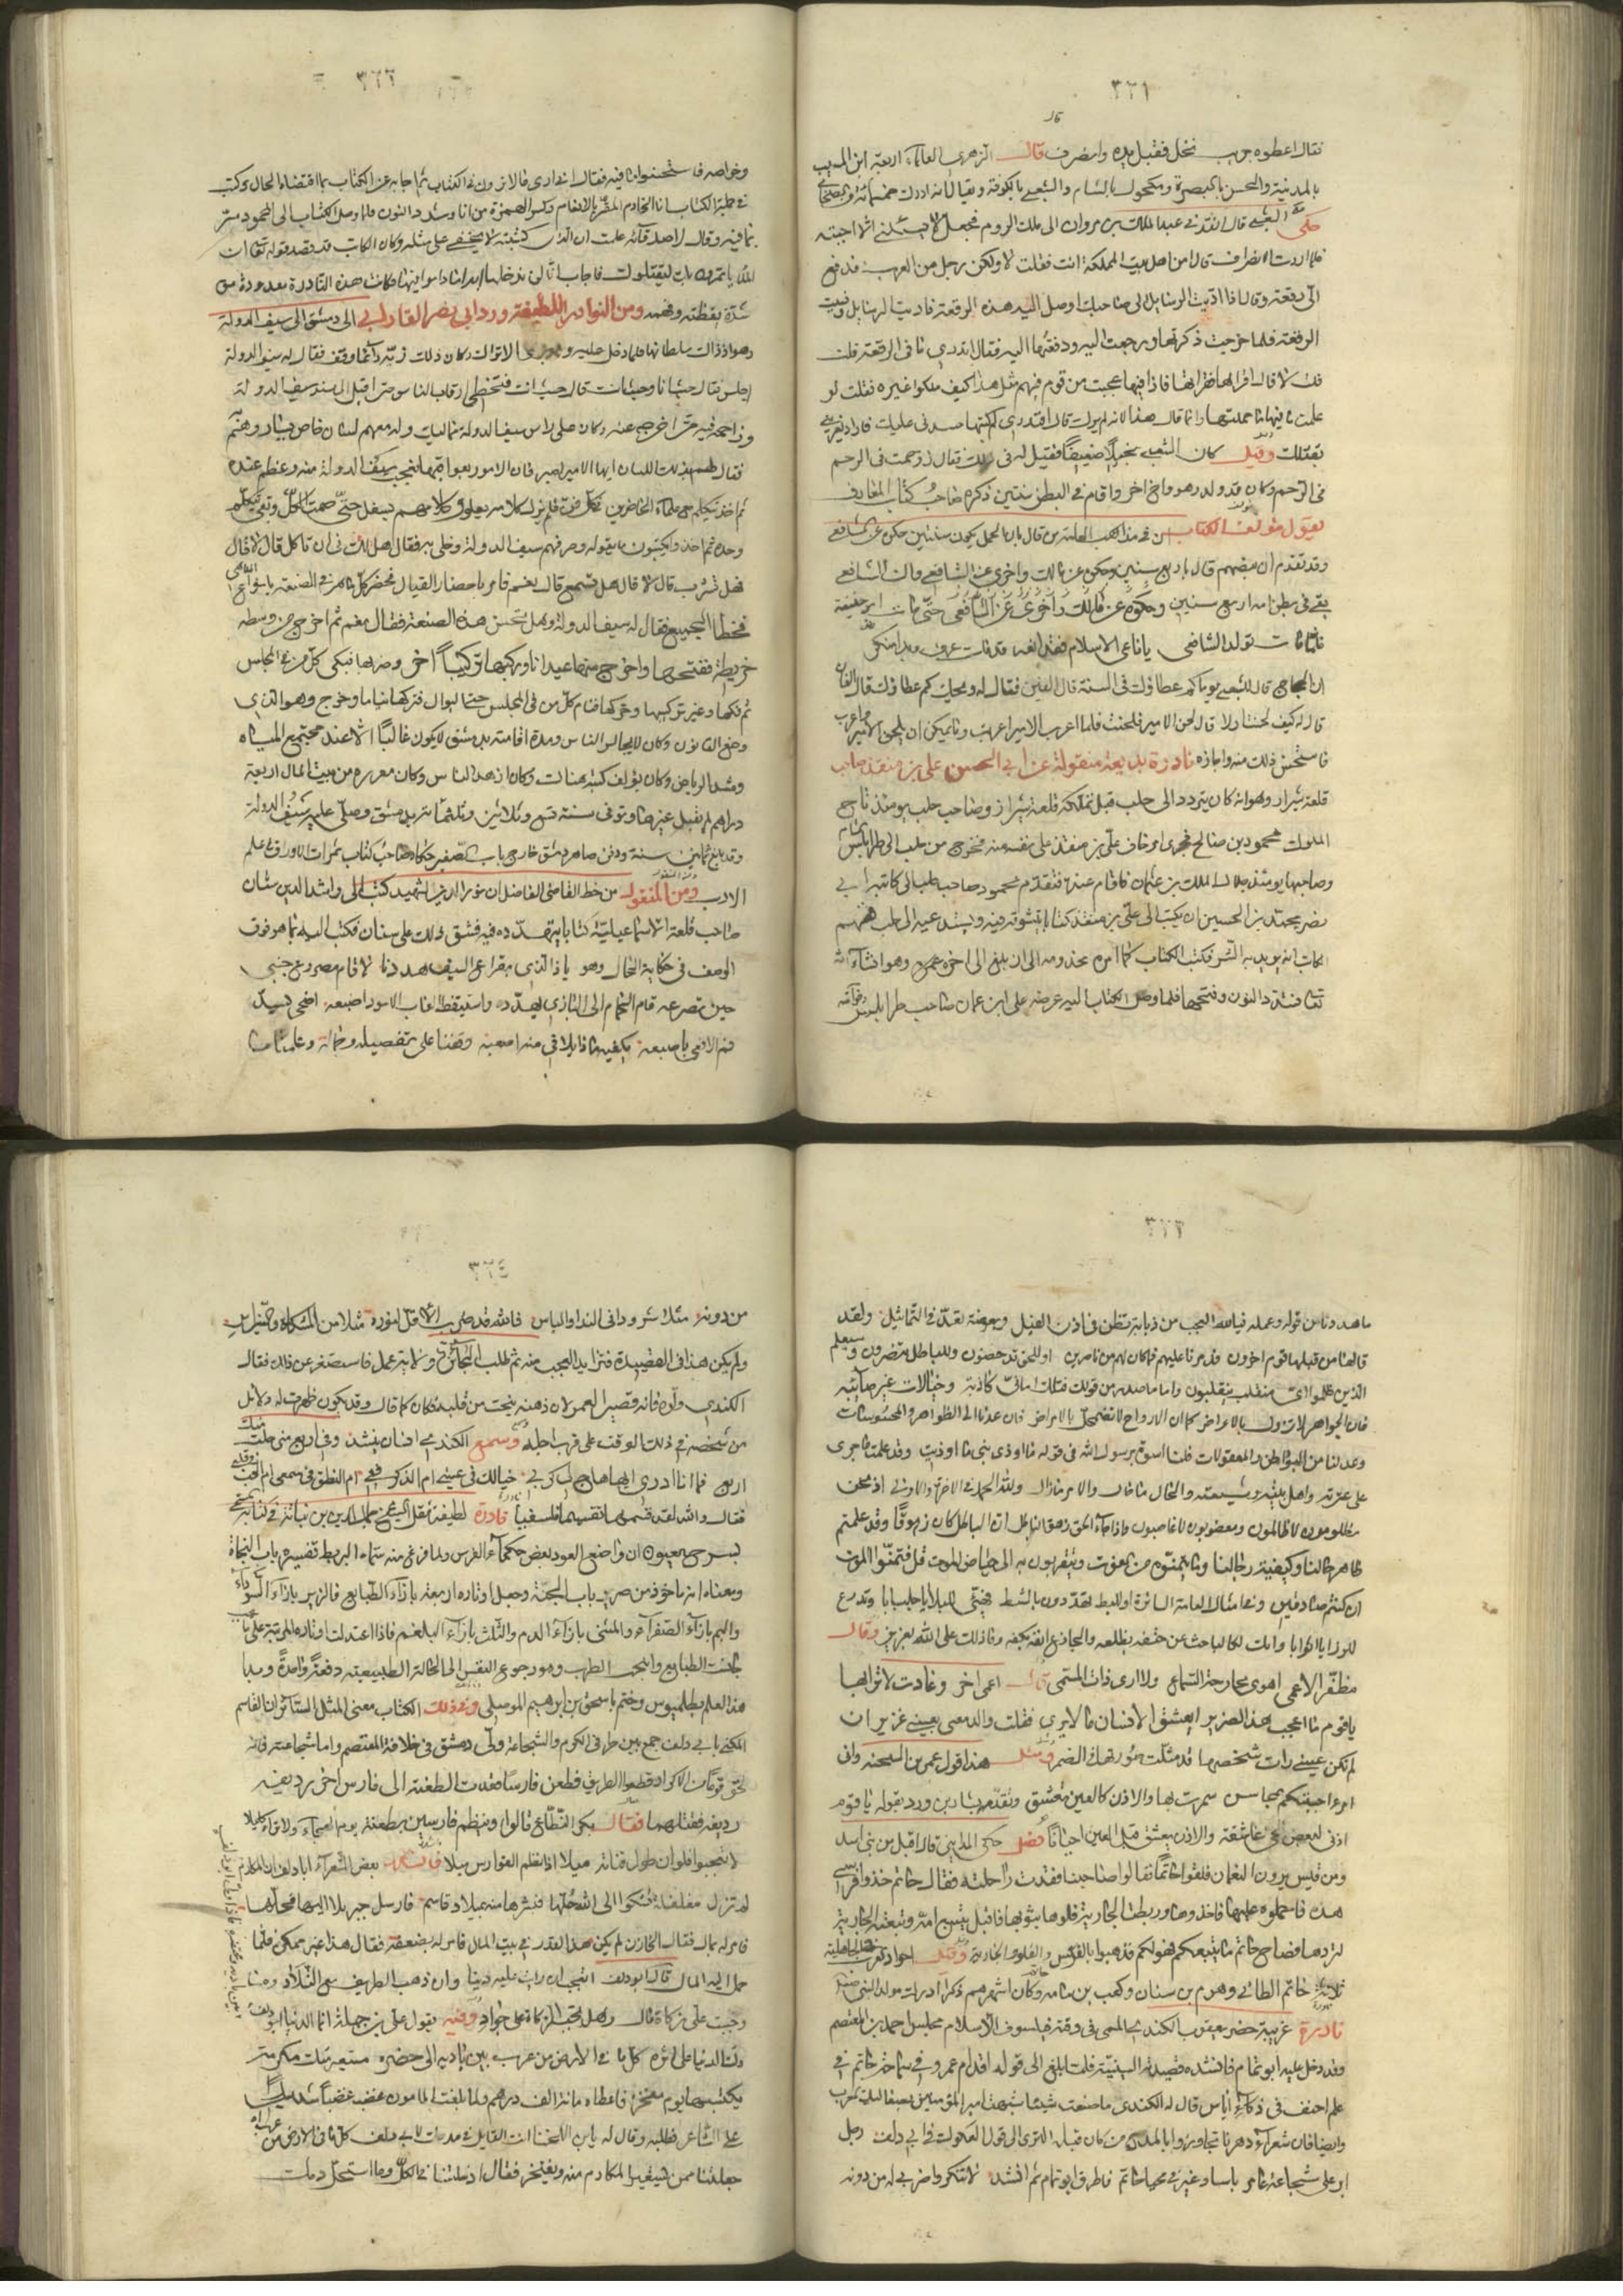 ٣٢١
فقال اعطوه جريب نخل فقبل يده وانصرف قال الزهري العلماء اربعة ابن المسيب
بالمدينة والحسن بالبصرة ومكحول بالشام والشعبي بالكوفة ويقال انه ادرك خمسمائة من الصحابة
حكى الشعبي قال انفذني عبد الملك بن مروان الى ملك الروم فجعل لا يسئلني الا اجبته
فلما اردت الانصراف قال امن اهل بيت المملكة انت فقلت لا ولكن رجل من العرب فدفع
الى رقعة وقال اذا اديت الرسايل الى صاحبك اوصل اليه هذه الرقعة فاديت الرسايل ونسيت
الرقعة فلما خرجت ذكرتها ورجعت اليه ودفعتها اليه فقال اتدري ما في الرقعة قلت
قلت لا قال اقرالها فقراتها فاذا فيها عجبت من قوم فيهم مثل هذا كيف ملكوا غيره فقلت لو
علمت ما فيها ما حملتها وانما قال هذا لانه لم يرك قال افتدري لم كتبها حسدني عليك فاراد يغريني
بقتلك وقيل كان الشعبي نحيلا ضعيفا فقيل له في ذلك فقال زوحمت في الرحم
في الرحم وكان قد ولد هو واخ اخر واقام في البطن سنتين ذكره صاحب كتاب المعارف
يقول مؤلف الكتاب من قال بان الحمل يكون سنتين حكي عن الشافعي
وقد تقدم ان بعضهم قال باربع سنين وحكوه عن مالك واخرى عن الشافعي وان الشافعي
بقي في بطن امه اربع سنين وحكوه عن مالك واخرى عن الشافعي حتى مات ابو حنيفة
فلما مات تولد الشافعي
ان الحجاج قال للشعبي يوما كم عطاؤك في السنة قال الفين فقال له ويحك كم عطاؤك قال الفان
قال له كيف لحنت اولا قال لحن الامير فلحنت فلما اعرب الامير اعربت وما يمكن ان يلحن الامير واعرب
فاستحسن ذلك منه واجازه نادرة بديعة منقولة عن ابي الحسن علي بن منقذ صاحب
قلعة شيزر وهو انه كان يتردد الى حلب قبل تملكه قلعة شيزر وصاحب حلب يومئذ تاج
الملوك محمود بن صالح فجرى امر خاف علي بن منقذ على نفسه منه فخرج من حلب الى طرابلس الشام
وصاحبها يومئذ جلال الملك بن عمار فاقام عنده فتقدم محمود صاحب حلب الى كاتبه ابي
نصر محمد بن الحسين ان يكتب الى علي بن منقذ كتابا يتشوقه فيه ويستدعيه الى حلب ففهم
الكاتب انه يريد به الشر فكتب الكتاب كما امره مخدومه الى ان بلغ الى اخره وهو انشاء الله
تعالى فشدد النون وفتحها فلما وصل الكتاب اليه عرضه على ابن عمار صاحب طرابلس
٣٢٢
وخواصه فاستحسنوا ما فيه فقال اني ارى ما لا ترون في الكتاب ثم اجابه عن الكتاب بما اقتضاه الحال وكتب
في جملة الكتاب انا الخادم المقر بالانعام وكسر الهمزة من انا وشدد النون فلما وصل الكتاب الى محمود سر
بما فيه وقال لاصدقائه علمت ان الذي كتبته لا يخفى على مثله وكان الكاتب قد قصد قوله تعالى ان
الملأ ياتمرون بك ليقتلوك فاجاب انا لن ندخلها ابدا ما داموا فيها فكانت هذه النادرة معدودة من
شدة يقظته وفهمه ومن النوادر اللطيفة ورد ابي نصر الفارابي الى دمشق الى سيف الدولة
وهو اذ ذاك سلطانها فلما دخل عليه وهو بزي الاتراك وكان ذلك زيه دائما وقف فقال له سيف الدولة
اجلس فقال حيث انا او حيث انت قال حيث انت فتخطى رقاب الناس حتى اقبل الى مسند سيف الدولة
وزاحمه فيه حتى اخرجه عنه وكان على راس سيف الدولة مماليك وله معهم لسان خاص يساررهم
فقال لهم بذلك اللسان ايها الامير اصبر فان الامور بعواقبها فتعجب سيف الدولة منه وعظم عنده
ثم اخذ يتكلم مع علماء الحاضرين في كل فن فلم يزل كلامه يعلو وكلامهم يسفل حتى صمت الكل وبقي يتكلم
وحده ثم اخذوا يكتبون ما يقوله وصرفهم سيف الدولة وخلى به فقال هل لك في ان تاكل قال لا قال
فهل تشرب قال لا قال هل تسمع قال نعم فامر باحضار القيان فحضر كل ماهر في الصنعة بانواع الملاهي
فخطا الجميع فقال له سيف الدولة وهل تحسن هذه الصنعة فقال نعم ثم اخرج من وسطه
خريطة ففتحها واخرج منها عيدانا وركبها تركيبا اخر وضرب بها فبكى كل من في المجلس
ثم فكها وغير تركيبها وحركها فنام كل من في المجلس حتى البواب فتركهم نياما وخرج وهو الذي
وضع القانون وكان لا يجالس الناس ومدة اقامته بدمشق لا يكون غالبا الا عند مجتمع المياه
ومشتبك الرياض وكان يؤلف كتبه هناك وكان ازهد الناس وكان مقرره من بيت المال اربعة
دراهم لم يقبل غيرها وتوفي سنة تسع وثلاثين وثلثمائة بدمشق وصلى عليه سيف الدولة
وقد بلغ ثمانين سنة ودفن بظاهر دمشق خارج باب الصغير حكاه صاحب كتاب ثمرات الاوراق في علم
الادب ومن المنقول من خط القاضي الفاضل ان نور الدين الشهيد كتب الى راشد الدين سنان
صاحب قلعة الاسماعيلية كتابا يتهدده فيه فشق ذلك على سنان فكتب اليه بما هو فوق
الوصف في حكاية الحال وهو يا ذا الذي بقراع السيف هددنا لا قام مصرع جنبي
حين تصرعه قام الحمام الى البازي يهدده واستيقظت لغاب الاسود اضبعه اضحى يسد
فم الافعى باصبعه يكفيه ماذا يلاقي منه اصبعه وقفنا على تفصيله وجمله وعلمنا ما
٣٢٣
ما هددنا من قوله وعمله فيا لله العجب من ذبابة تطن في اذن الفيل وبعوضة تعد في التماثيل ولقد
قالها من قبلها قوم اخرون فدمرنا عليهم فما كان لهم من ناصرين او للحق تدحضون وللباطل تنصرون وسيعلم
الذين ظلموا اي منقلب ينقلبون واما ما صدر من قولك فتلك اماني كاذبة وخيالات غير صائبة
فان الجواهر لا تزول بالاعراض كما ان الارواح لا تضمحل بالامراض فان عدنا الى الظواهر والمحسوسات
وعدلنا من البواطن والمعقولات فلنا اسوة برسول الله في قوله ما اوذي نبي ما اوذيت وقد علمت ما جرى
على عترته واهل بيته وشيعته والحال ما حال والامر ما زال ولله الحمد في الاخرة والاولى اذ نحن
مظلومون لا ظالمون ومغصوبون لا غاصبون واذا جاء الحق زهق الباطل ان الباطل كان زهوقا وقد علمتم
ظاهر حالنا وكيفية رجالنا وما يتمنونه من الفوت ويتقربون به الى حياض الموت قل فتمنوا الموت
ان كنتم صادقين وفي امثال العامة السائرة او للبط تهددون بالشط فهيئ للبلايا جلبابا وتدرع
للرزايا اثوابا وانك لكالباحث عن حتفه بظلفه والجادع انفه بكفه وما ذلك على الله بعزيز وقال
مظفر الاعمى اهوى بجارحة السماع ولا ارى ذات المسمى قال اعمى اخر وغادت لاترابها
يا قوم ما اعجب هذا الضرير ايعشق الانسان ما لا يرى فقلت والدمع بعيني غزير ان
لم تكن عيني رات شخصها قد مثلت صورتها في الضمير ومثل هذا قول عمر بن الشحنة واني
امرء احببتكم لمحاسن سمعت بها والاذن كالعين تعشق وتقدمه بشار بن برد بقوله يا قوم
اذني لبعض الحي عاشقة والاذن تعشق قبل العين احيانا فصل حكى المدايني قال اقبل من بني اسد
ومن قيس يريدون النعمان فلقوا حاتما فقالوا صاحبنا فقدت راحلته فقال حاتم خذوا فرسي
هذه فاحملوه عليها فاخذوها وربطت الجارية فلوها بثوبها فافلت يتبع امه وتبعته الجارية
لترده فصاح حاتم ما يتبعكم فهو لكم فذهبوا بالفرس والفلو والجارية وقيل اجواد العرب في الجاهلية
ثلاثة حاتم الطائي وهرم بن سنان وكعب بن مامه وكان اشهرهم ذكرا ادرك مولد النبي
نادرة غريبة حضر يعقوب الكندي المسمى في وقته فيلسوف الاسلام مجلس احمد بن المعتصم
وقد دخل عليه ابو تمام فانشده قصيدته السينية فلما بلغ الى قوله اقدام عمرو في سماحة حاتم في
حلم احنف في ذكاء اياس قال له الكندي ما صنعت شيئا شبهت امير المؤمنين بصعاليك العرب
وايضا فان شعراء دهرنا تجاوزوا بالممدوح من كان قبله الا ترى الى قول العكوك في ابي دلف رجل
ابر على شجاعة عامر باسا وغبر في محيا حاتم فاطرق ابو تمام ثم انشد لا تنكروا ضربي له من دونه
٣٢٤
من دونه مثلا شرودا في الندا والباس فالله قد ضرب الاقل لنوره مثلا من المشكاة والنبراس
ولم يكن هذا في القصيدة فتزايد العجب منه ثم طلب الجائزة ولاية عمل فاستصغر عن ذلك فقال
الكندي ولوه فانه قصير العمر لان ذهنه ينحت من قلبه فكان كما قال وقد يكون ظهرت له دلائل
من شخصه في ذلك الوقت على قرب اجله وسمع الكندي انسان ينشد وفي اربع مني حلت منك
اربع فما انا ادري ايها هاج لي كربي خيالك في عيني ام الذكر في فمي ام النطق في سمعي ام الحب في قلبي
فقال والله لقد قسمها تقسيما فلسفيا نادرة لطيفة نقل الشيخ جمال الدين بن نباته في كتابه المسمى
بسرح العيون ان واضع العود بعض حكماء الفرس ولما فرغ منه سماه البربط تفسيره باب النجاة
ومعناه انه ماخوذ من صرير باب الجنة وجعل اوتاره اربعة بازاء الطبايع فالزير بازاء السوداء
والبم بازاء الصفراء والمثنى بازاء الدم والثلث بازاء البلغم فاذا اعتدلت اوتاره المرتبة على ما يجب
جانست الطبايع وانتجت الطرب وهو رجوع النفس الى الحالة الطبيعية دفعة واحدة وبدا
هذا العلم بطلميوس وختم باسحق بن ابرهيم الموصلي ومن ذلك الكتاب معنى المثل السائر ان القاسم
المكنى بابي دلف جمع بين طرفي الكرم والشجاعة وولي دمشق في خلافة المعتصم واما شجاعته فانه
لحق قوما من الاكراد قطعوا الطريق فطعن فارسا فنفذت الطعنة الى فارس اخر رديفه
رديفه فقتلهما فقال بكر النطاح قالوا وينظم فارسين بطعنة يوم الهيجاء ولا تراه كليلا
لا تعجبوا فلو ان طول قناته ميلا اذا نظم الفوارس ميلا بعض الشعراء ابا دلف ان المكارم
لم تزل مغلغلة تشكوا الى الله غلها فبشرها منه بميلاد قاسم فارسل جبريلا اليها فحلها
فامر له بمال فقال الخازن لم يكن هذا القدر في بيت المال فامر له بضعفه فقال هذا غير ممكن فلما
حمل اليه المال قال ابو دلف اتعجب ان رايت عليه دينا وان ذهب الطريف مع التلاد وما
وجبت علي زكاة مال وهل تجب الزكاة على جواد وفيه يقول علي بن جبلة انما الدنيا ابو دلف
ولت الدنيا على اثره كل ما في الارض من عرب بين باديه الى حضره مستعير منك مكرمة
يكتسبها يوم مفتخره فاعطاه مائة الف درهم ولما بلغت المامون غضب غضبا شديدا
على الشاعر فطلبه وقال له يا ابن اللخناء انت القايل في مدحك لابي دلف كل ما في الارض من عرب
جعلتنا ممن يستعير المكارم منه ويفتخر فقال ادخلتنا في الكل وما استحل دمك